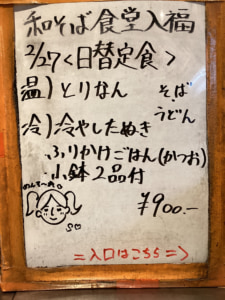 和そば食堂入福
2/27<日替定食>
温)とりなん そば
うどん
冷)冷やしたぬき
ふりかけごはん(かつお)
小鉢2品付
¥900.-
=入口はこちら=>